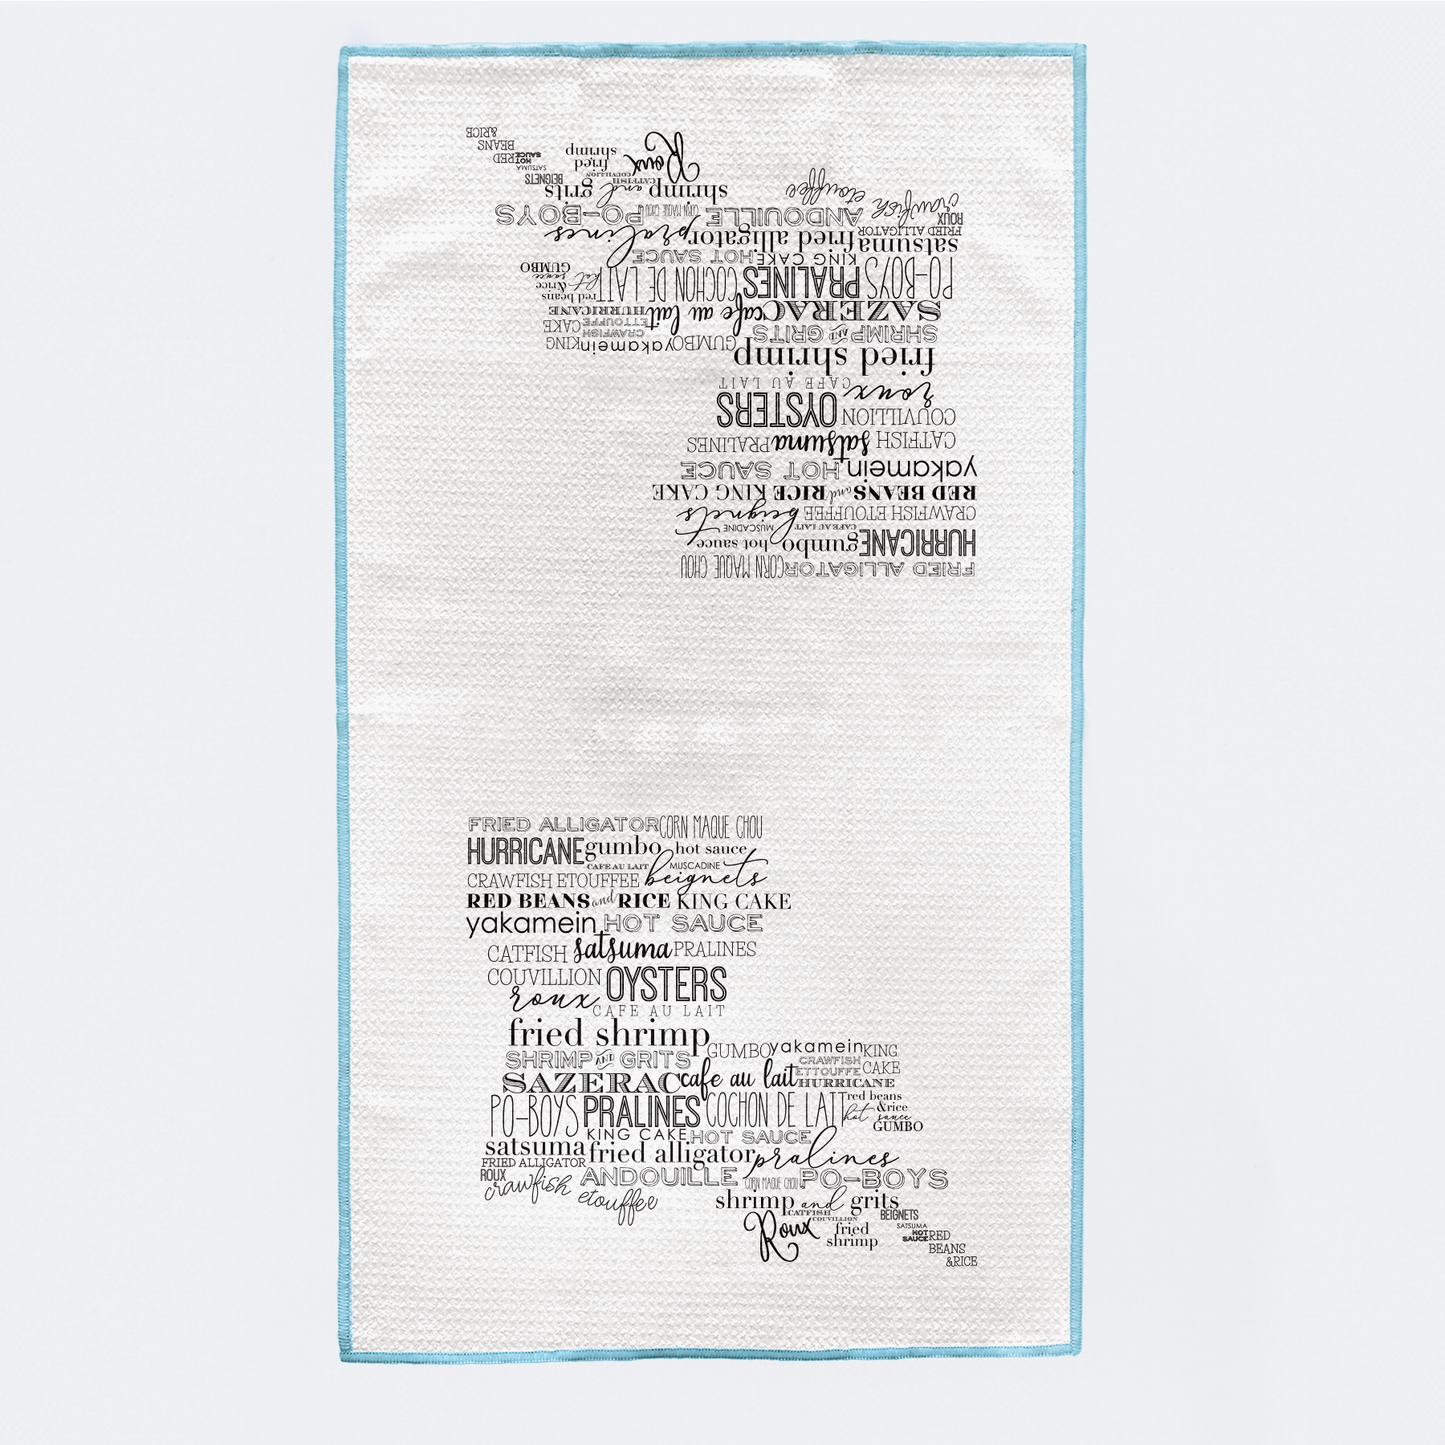 FRIED ALLIGATOR CORN MAQUE CHOU
HURRICANE gumbo hot sauce
CAFE AU LAIT MUSCADINE
CRAWFISH ETOUFFEE beignets
RED BEANS and RICE KING CAKE
yakamein HOT SAUCE
CATFISH satsuma PRALINES
COUVILLION OYSTERS
roux CAFE AU LAIT
fried shrimp
GUMBO yakamein KING
SHRIMP AND GRITS CRAWFISH
ETTOUFFE CAKE
SAZERAC cafe au lait HURRICANE
PO-BOYS PRALINES COCHON DE LAIT red beans
&rice
hot sauce
GUMBO
KING CAKE HOT SAUCE
satsuma fried alligator pralines
FRIED ALLIGATOR
ROUX ANDOUILLE CORN MAQUE CHOU PO-BOYS
crawfish etouffee shrimp and grits
CATFISH BEIGNETS
COUVILLION
Roux fried SATSUMA
shrimp HOT
SAUCE RED
BEANS
&RICE
FRIED ALLIGATOR CORN MAQUE CHOU
HURRICANE gumbo hot sauce
CAFE AU LAIT MUSCADINE
CRAWFISH ETOUFFEE beignets
RED BEANS and RICE KING CAKE
yakamein HOT SAUCE
CATFISH satsuma PRALINES
COUVILLION OYSTERS
roux CAFE AU LAIT
fried shrimp
GUMBO yakamein KING
SHRIMP AND GRITS CRAWFISH
ETTOUFFE CAKE
SAZERAC cafe au lait HURRICANE
PO-BOYS PRALINES COCHON DE LAIT red beans
&rice
hot sauce
GUMBO
KING CAKE HOT SAUCE
satsuma fried alligator pralines
FRIED ALLIGATOR
ROUX ANDOUILLE CORN MAQUE CHOU PO-BOYS
crawfish etouffee shrimp and grits
CATFISH BEIGNETS
COUVILLION
Roux fried SATSUMA
shrimp HOT
SAUCE RED
BEANS
&RICE